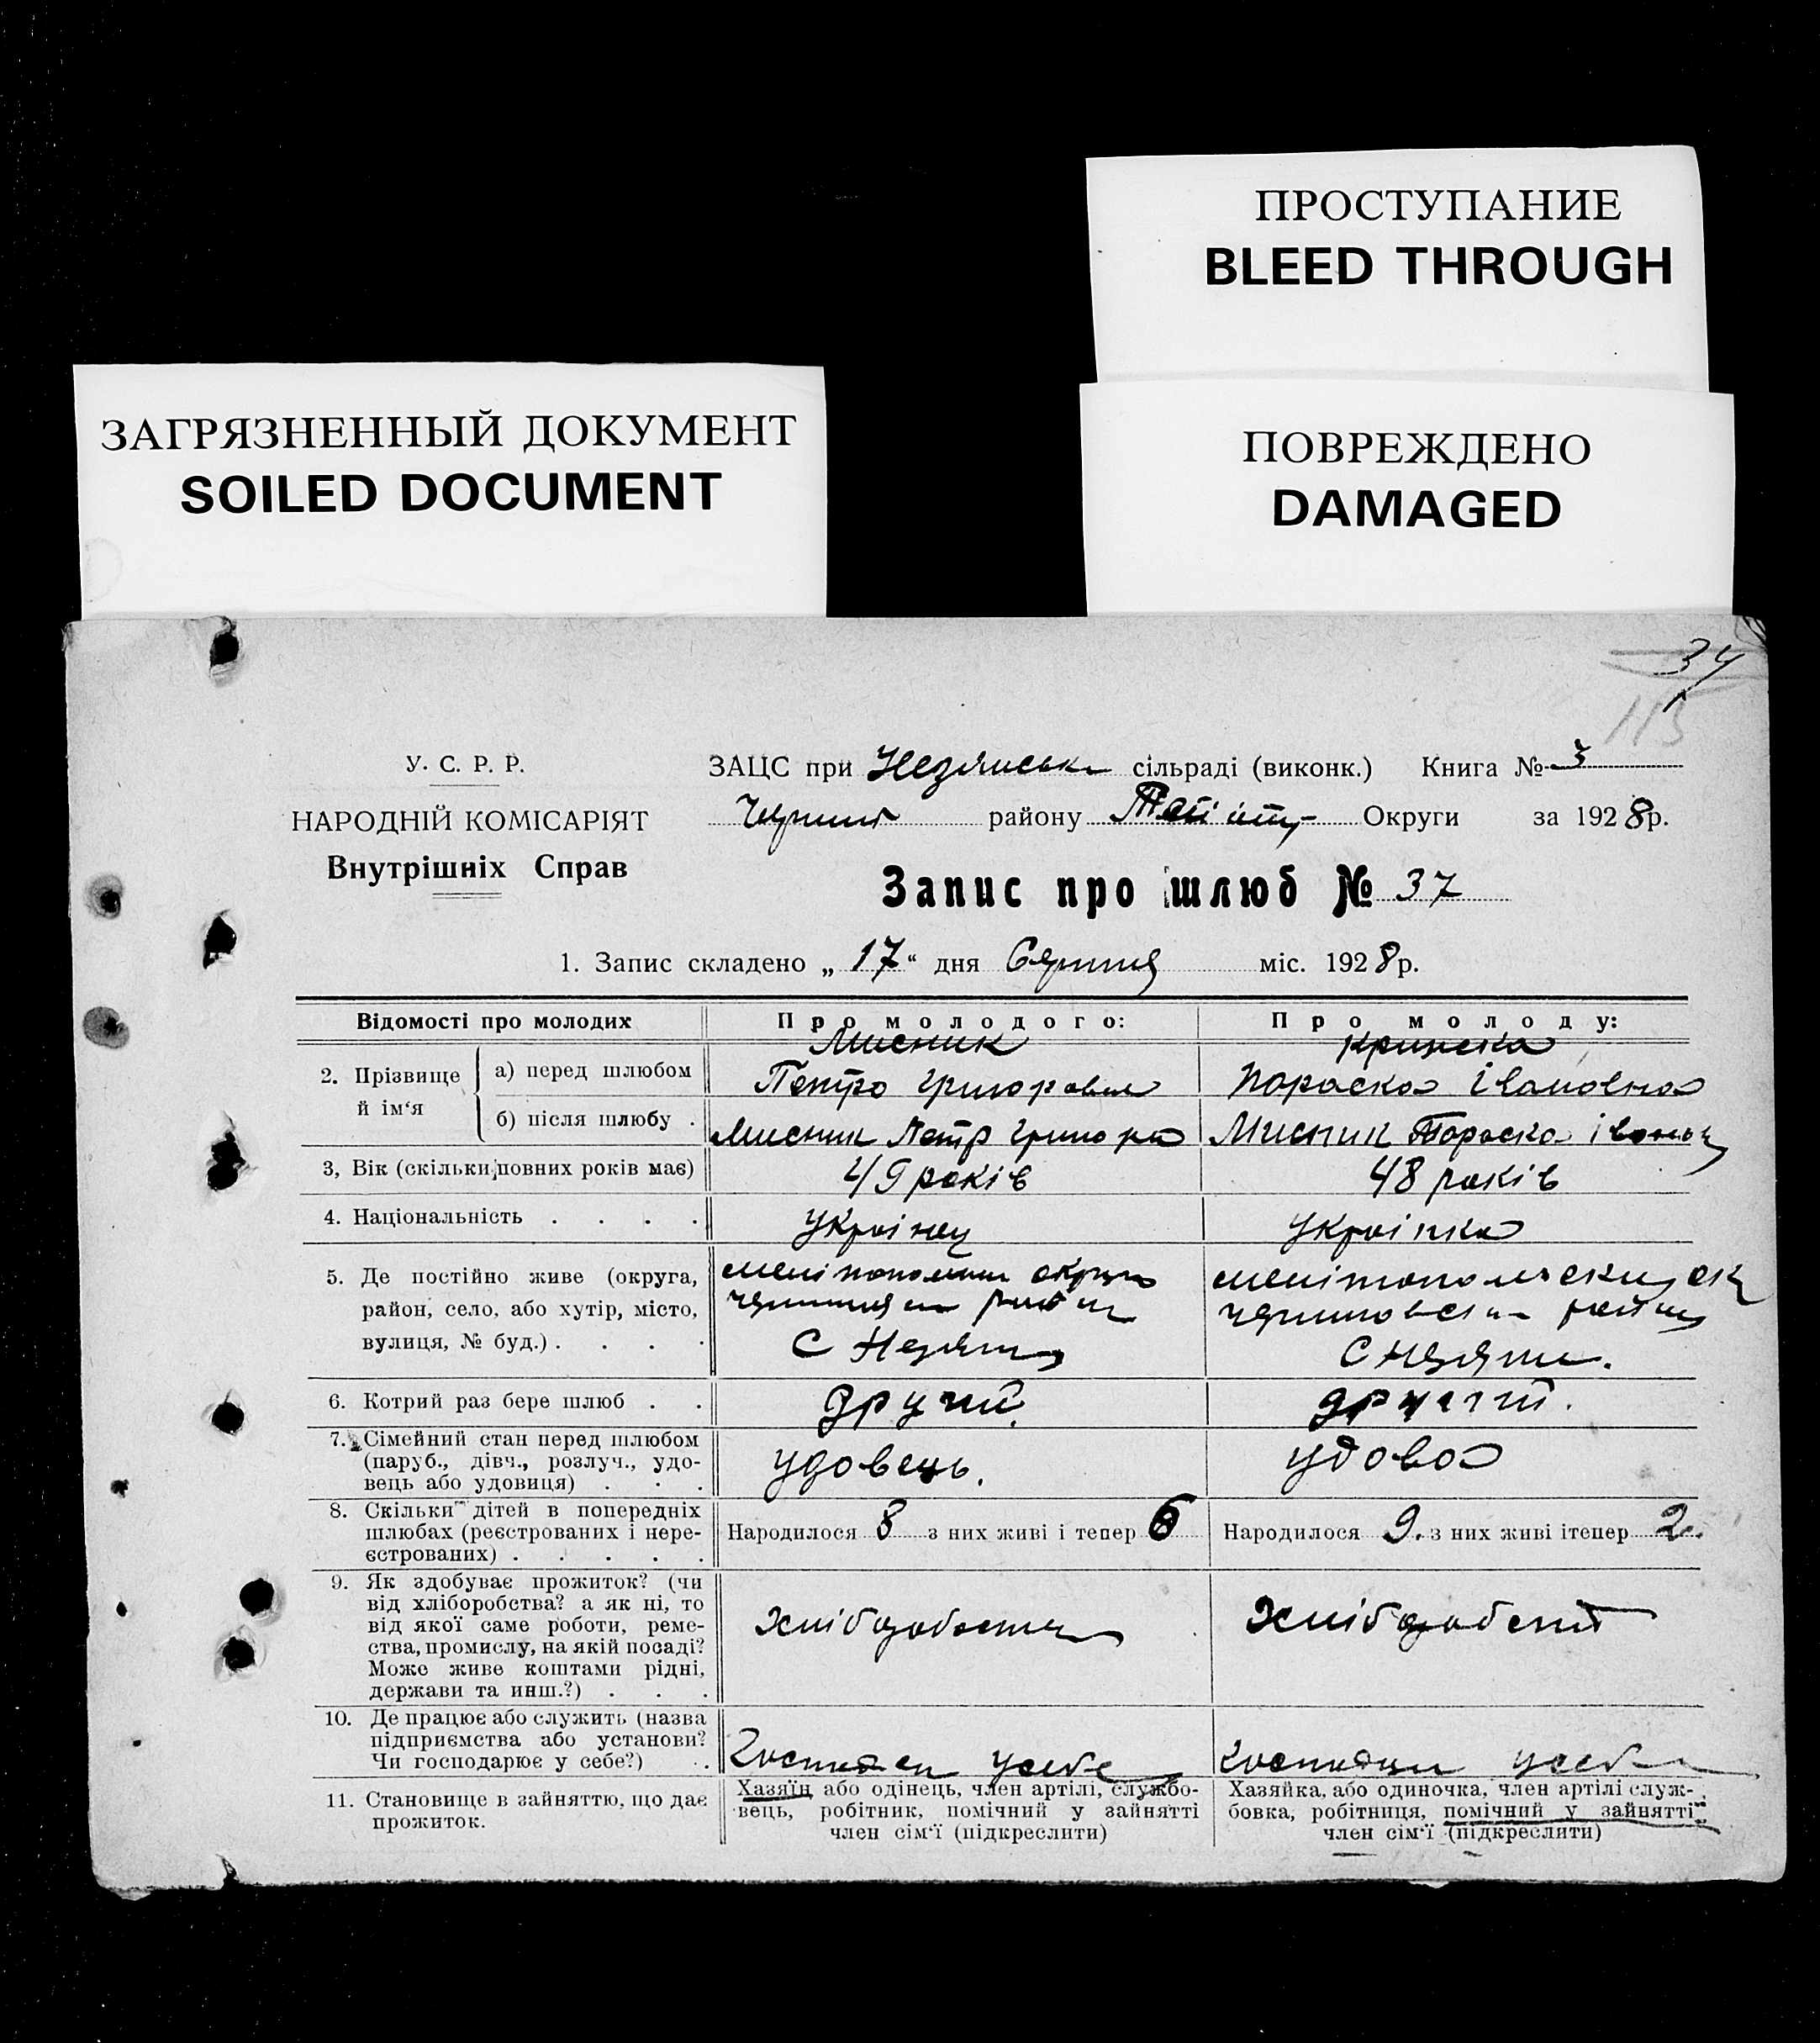 ПРОСТУПАНИЕ
BLEED THROUGH
ЗАГРЯЗНЕННЫЙ ДОКУМЕНТ
SOILED DOCUMENT
ПОВРЕЖДЕНО
DAMAGED
34
113
У. С. Р. Р.
НАРОДНІЙ КОМІСАРІЯТ
Внутрішніх Справ
ЗАЦС при сільраді (виконк.) Книга № 3
району Округи за 1928р.
Запис про шлюб № 37
1. Запис складено „17“ дня Серпня міс. 1928р.
Відомості про молодих
Про молодого:
Про молоду:
2. Прізвище й ім‘я
а) перед шлюбом
Мисник
Петро
Пораска Івановна
б) після шлюбу .
Мисник Петр
Мисник Пораска
3, Вік (скільки повних років має)
49 років
48 років
4. Національність . . . .
Українец
Українка
5. Де постійно живе (округа,
район, село, або хутір, місто,
вулиця, № буд.) . . . .
С
С
6. Котрий раз бере шлюб . .
другий.
другий.
7. Сімейний стан перед шлюбом
(паруб., дівч., розлуч., удо-
вець або удовиця) . . .
удовець.
удова
8. Скільки дітей в попередніх
шлюбах (реєстрованих і нере-
єстрованих) . . . . .
Народилося 8 з них живі і тепер 6
Народилося 9. з них живі ітепер 2.
9. Як здобуває прожиток? (чи
від хліборобства? а як ні, то
від якої саме роботи, реме-
ства, промислу, на якій посаді?
Може живе коштами рідні,
держави та инш.?) . . .
10. Де працює або служить (назва
підприємства або установи?
Чи господарює у себе?) . .
усебе
усебе
11. Становище в зайняттю, що дає
прожиток.
Хазяїн або одінець, член артілі, службо-
вець, робітник, помічний у зайнятті
член сім‘ї (підкреслити)
Хазяйка, або одиночка, член артілі служ-
бовка, робітниця, помічний у зайнятті
член сім‘ї (підкреслити)